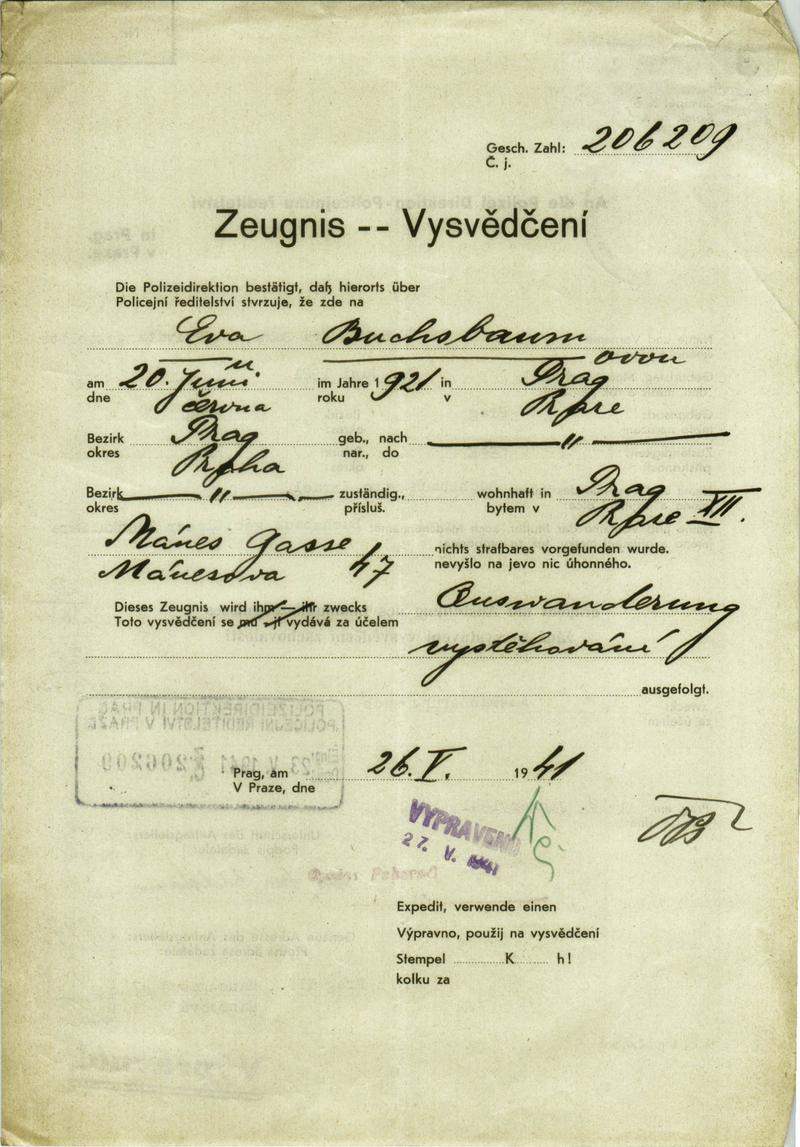 Gesch. Zahl: 206209
Č. j.
Zeugnis -- Vysvědčení
Die Polizeidirektion bestätigt, daß hierorts über
Policejní ředitelství stvrzuje, že zde na
Eva Buchsbaum
ovou
am 20. Juni im Jahre 1921 in Prag
dne června roku v Praze
Bezirk Prag geb., nach — " —
okres Praha nar., do
Bezirk — " — zuständig., wohnhaft in Prag
okres přísluš. bytem v Praze XII.
Mánes Gasse nichts strafbares vorgefunden wurde.
Mánesova 47 nevyšlo na jevo nic úhonného.
Dieses Zeugnis wird ihm — ihr zwecks Auswanderung
Toto vysvědčení se mu - jí vydává za účelem
vystěhování
ausgefolgt.
POLIZEIDIREKTION IN PRAG
POLICEJNÍ ŘEDITELSTVÍ V PRAZE
23. V. 1941 206209
Prag, am 26. V. 1941
V Praze, dne
VYPRAVENO
27. V. 1941
Expedit, verwende einen
Výpravno, použij na vysvědčení
Stempel K h!
kolku za